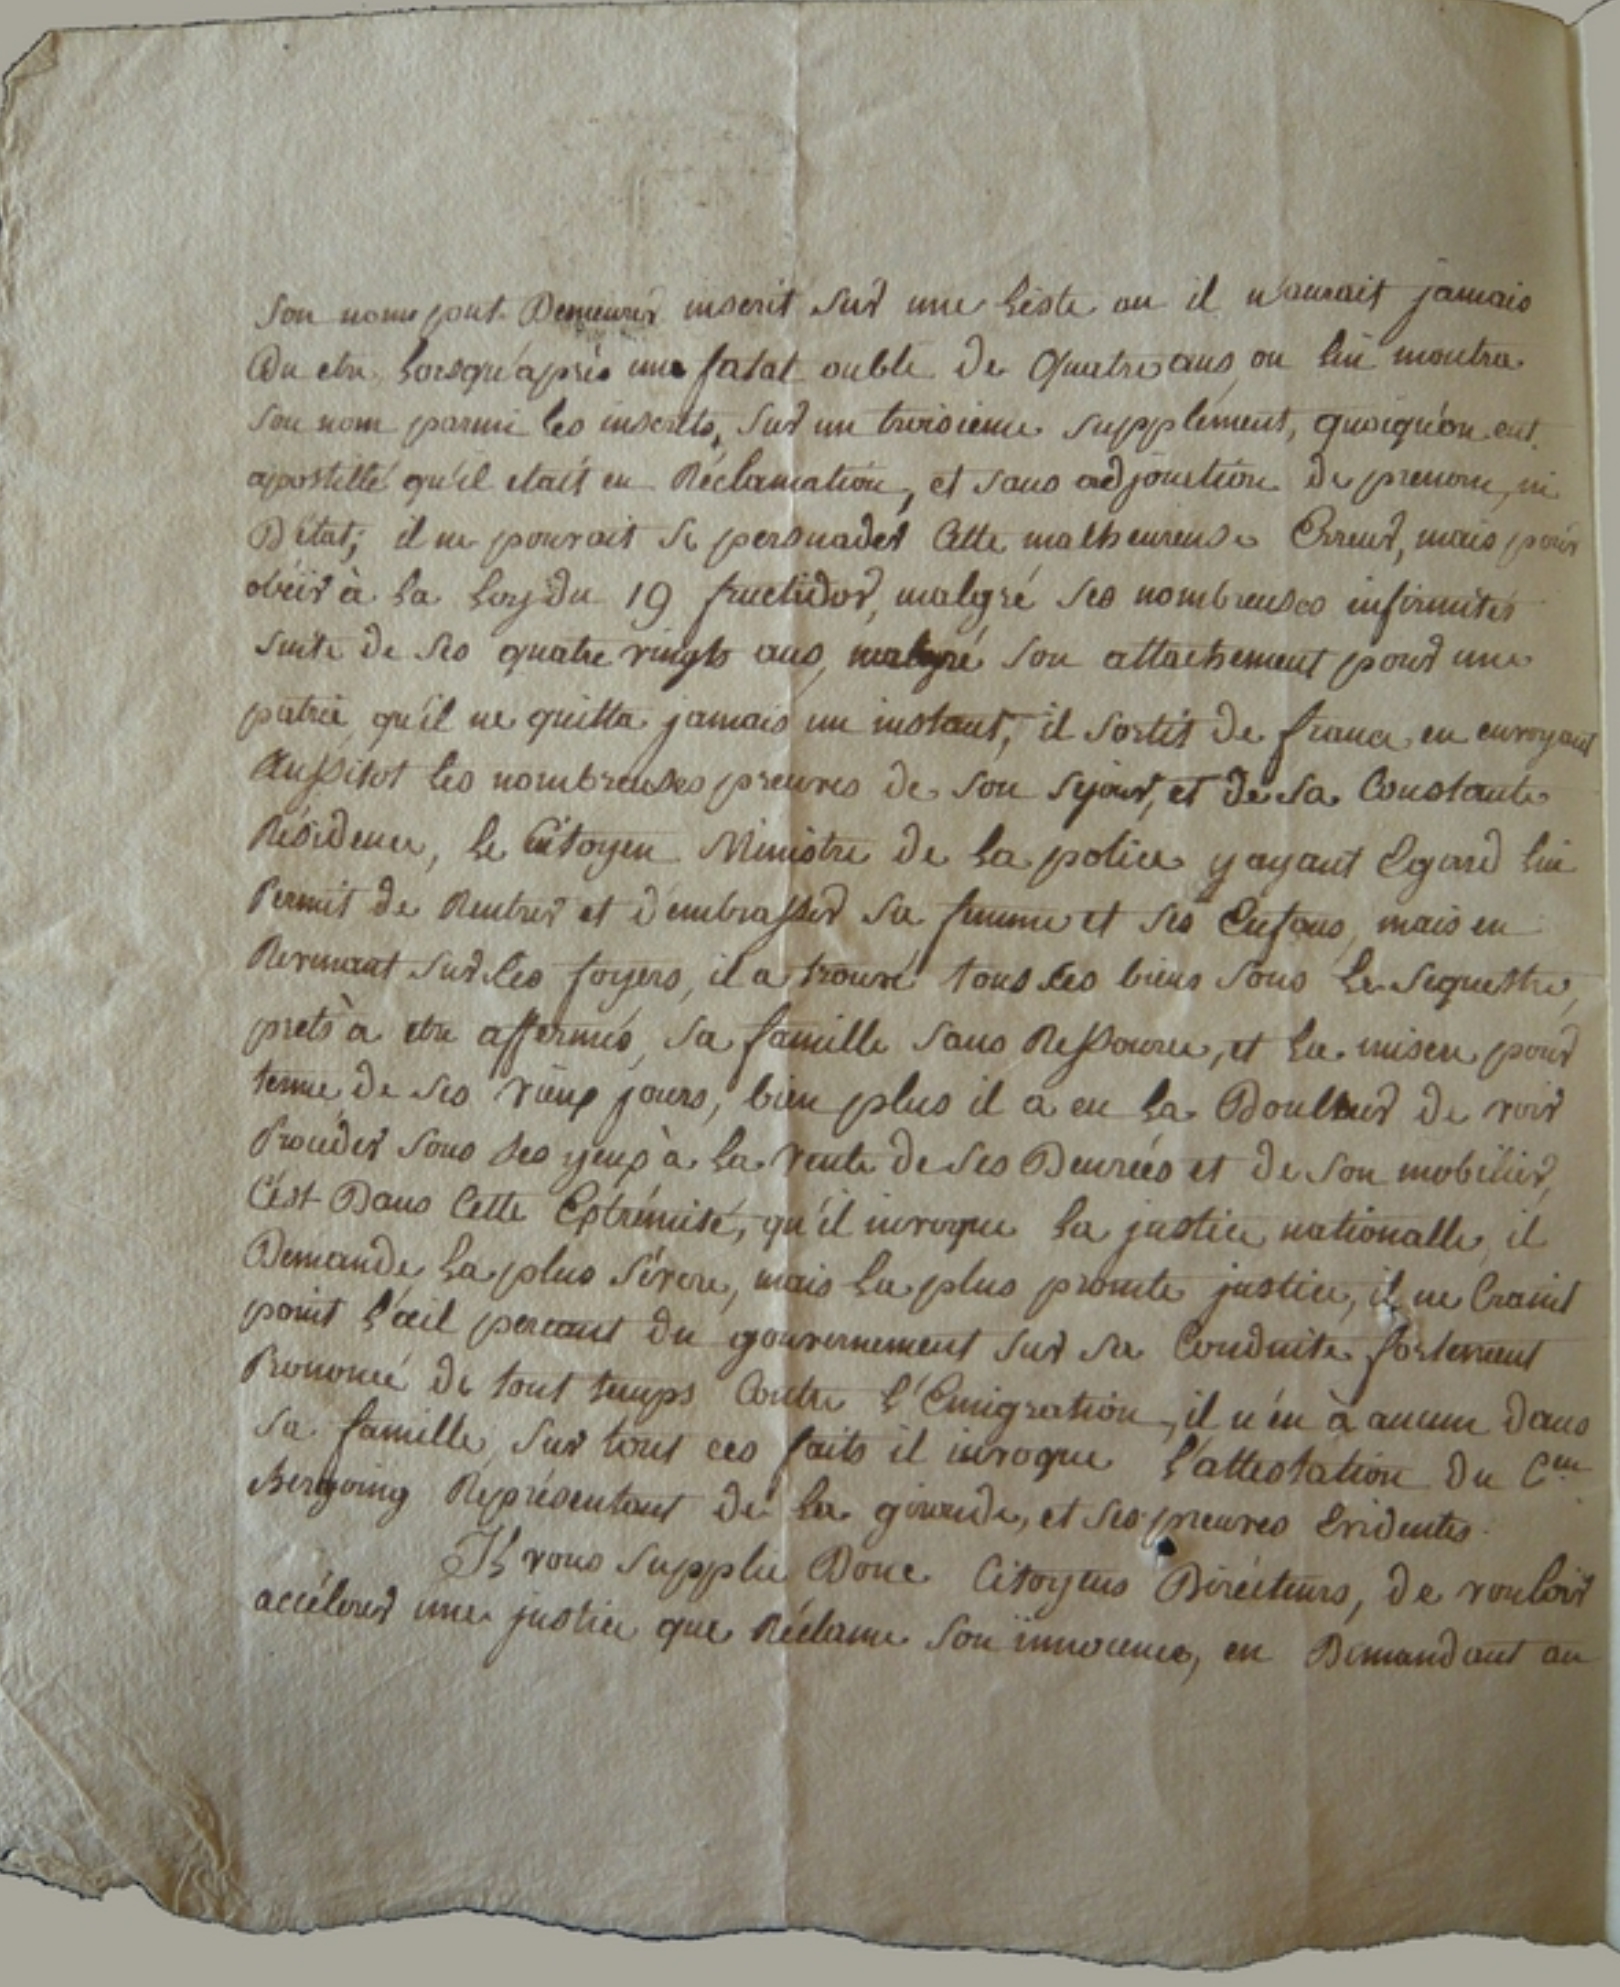 son nom put Demeurer inscrit sur une liste ou il n'aurait jamais
Du etre, lorsqu'après une fatal oubli de Quatre ans, on lui montra
son nom parmi les inscrits, sur un troisieme supplément, quoiqu'on eut
apostillé qu'il etait en Réclamation, et sans adjonction de prenom, ni
D'état; il ne pouvait se persuader Cette malheureuse Erreur, mais pour
obéir à la Loy du 19 fructidor, malgré ses nombreuses infirmités
suite de ses quatre vingts ans, malgré son attachement pour une
patrie, qu'il ne quitta jamais un instant, il sortit de france, en envoyant
Aussitot les nombreuses preuves de son sejour, et de sa Constante
Résidence, le Citoyen Ministre de la police y ayant Egard lui
Permit de Rentrer et d'embrasser sa femme et ses Enfans, mais en
Revenant sur les foyers, il a trouvé tous ses biens sous le sequestre,
prets à etre affermés, sa famille sans Ressource, et la misere pour
terme de ses vieux jours, bien plus il a eu la Douleur de voir
Proceder sous ses yeux à la vente de ses Denrées et de son mobilier,
C'est Dans Cette Extrémité, qu'il invoque la justice nationalle, il
Demande la plus sévere, mais la plus promte justice, il ne Craint
point l'œil percant du gouvernement sur sa Conduite fortement
Prononcé de tout temps Contre l'Emigration, il n'en à aucun dans
sa famille, sur tout ces faits il invoque l'attestation du C.en
Bergoing Représentant de la gironde, et ses preuves Evidentes.
Il vous supplie Donc Citoyens Directeurs, de vouloir
accélerer une justice que Réclame son innocence, en Demandant au